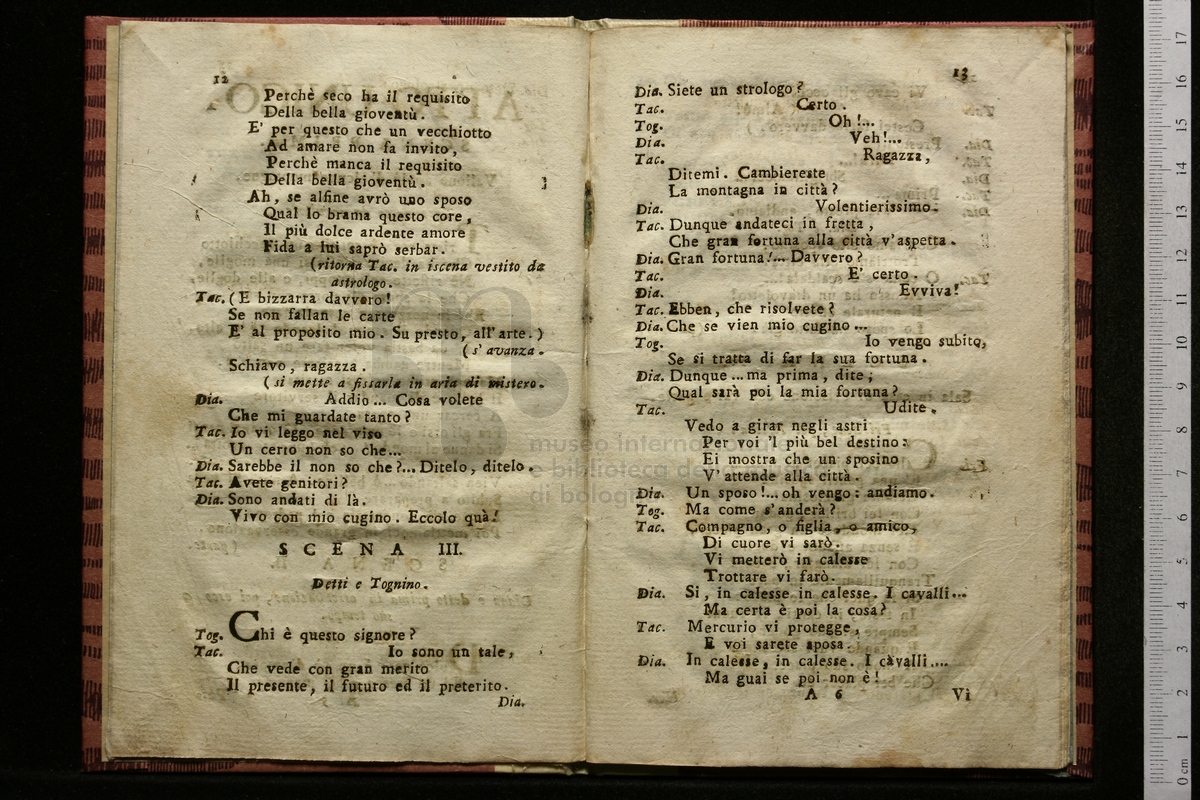 12
Perchè seco ha il requisito
Della bella gioventù.
E' per questo che un vecchiotto
Ad amare non fa invito,
Perchè manca il requisito
Della bella gioventù.
Ah, se alfine avrò uno sposo
Qual lo brama questo core,
Il più dolce ardente amore
Fida a lui saprò serbar.
(ritorna Tac. in iscena vestito da
astrologo.
Tac. (E bizzarra davvero!
Se non fallan le carte
E' al proposito mio. Su presto, all'arte.)
(s'avanza.
Schiavo, ragazza.
(si mette a fissarla in aria di mistero.
Dia. Addio... Cosa volete
Che mi guardate tanto?
Tac. Io vi leggo nel viso
Un certo non so che...
Dia. Sarebbe il non so che?... Ditelo, ditelo.
Tac. Avete genitori?
Dia. Sono andati di là.
Vivo con mio cugino. Eccolo quà!
SCENA III.
Detti e Tognino.
Tog. Chi è questo signore?
Tac. Io sono un tale,
Che vede con gran merito
Il presente, il futuro ed il preterito.
Dia.
13
Dia. Siete un strologo?
Tac. Certo.
Tog. Oh!...
Dia. Veh!...
Tac. Ragazza,
Ditemi. Cambiereste
La montagna in città?
Dia. Volentierissimo.
Tac. Dunque andateci in fretta,
Che gran fortuna alla città v'aspetta.
Dia. Gran fortuna!... Davvero?
Tac. E' certo.
Dia. Evviva!
Tac. Ebben, che risolvete?
Dia. Che se vien mio cugino...
Tog. Io vengo subito,
Se si tratta di far la sua fortuna.
Dia. Dunque... ma prima, dite;
Qual sarà poi la mia fortuna?
Tac. Udite.
Vedo a girar negli astri
Per voi 'l più bel destino:
Ei mostra che un sposino
V'attende alla città.
Dia. Un sposo!... oh vengo: andiamo.
Tog. Ma come s'anderà?
Tac. Compagno, o figlia, o amico,
Di cuore vi sarò.
Vi metterò in calesse
Trottare vi farò.
Dia. Si, in calesse in calesse. I cavalli...
Ma certa è poi la cosa?
Tac. Mercurio vi protegge,
E voi sarete sposa.
Dia. In calesse, in calesse. I cavalli....
Ma guai se poi non è!
A 6 Vi
museo internazionale
e biblioteca della
di bologna
0 cm 1 2 3 4 5 6 7 8 9 10 11 12 13 14 15 16 17